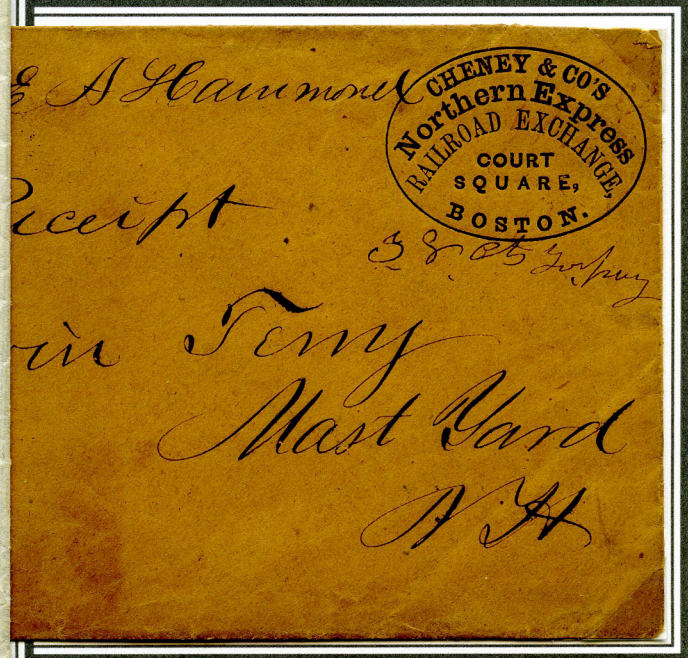 E A Hammond
CHENEY & CO'S
Northern Express
RAILROAD EXCHANGE,
COURT
SQUARE,
BOSTON.
Receipt
in Terry
Mast Yard
N H